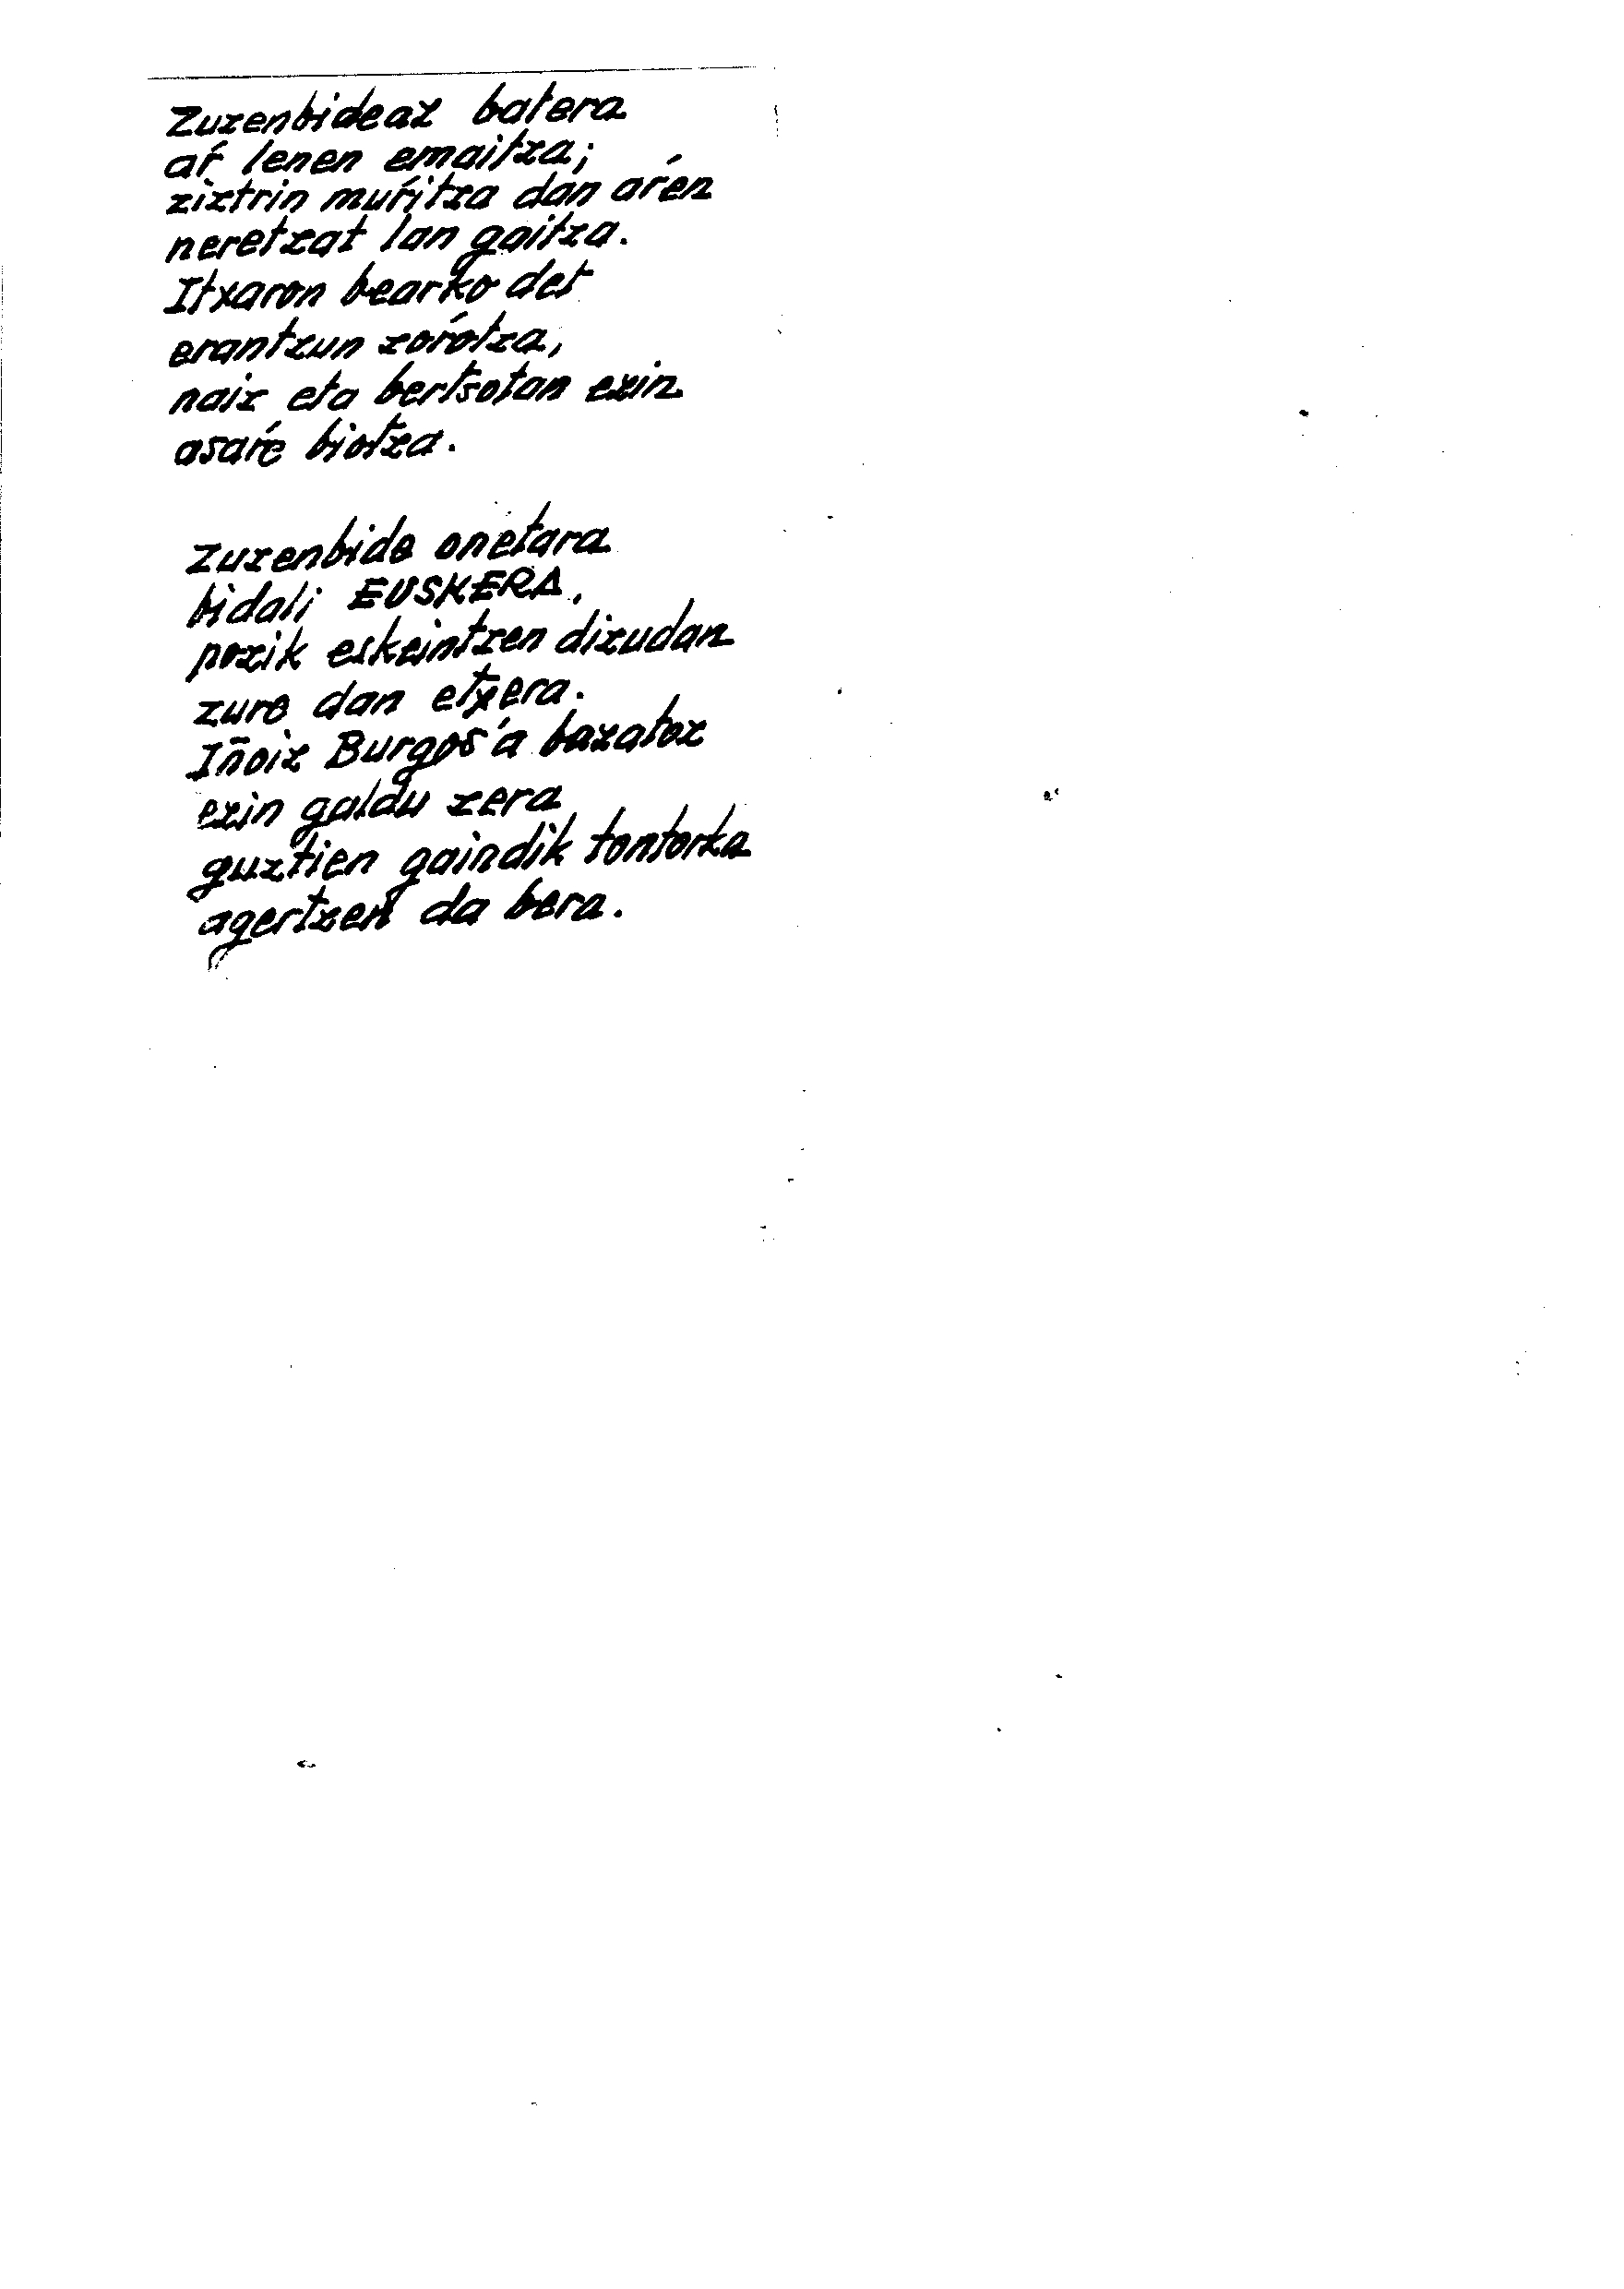 Zuzenbideaz batera
aŕ lenen emaitza;
ziztrin muŕitza dan aŕen
neretzat lan gaitza.
Itxaron bearko det
erantzun zoŕotza,
naiz eta bertsotan ezin
asaŕe biotza.

Zuzenbide onetara
bidali EUSKERA,
pozik eskeintzen dizudan
zure dan etxera.
Iñoiz Burgos'a bazatoz
ezin galdu zera
guztien gaindik tontorka
agertzen da bera.